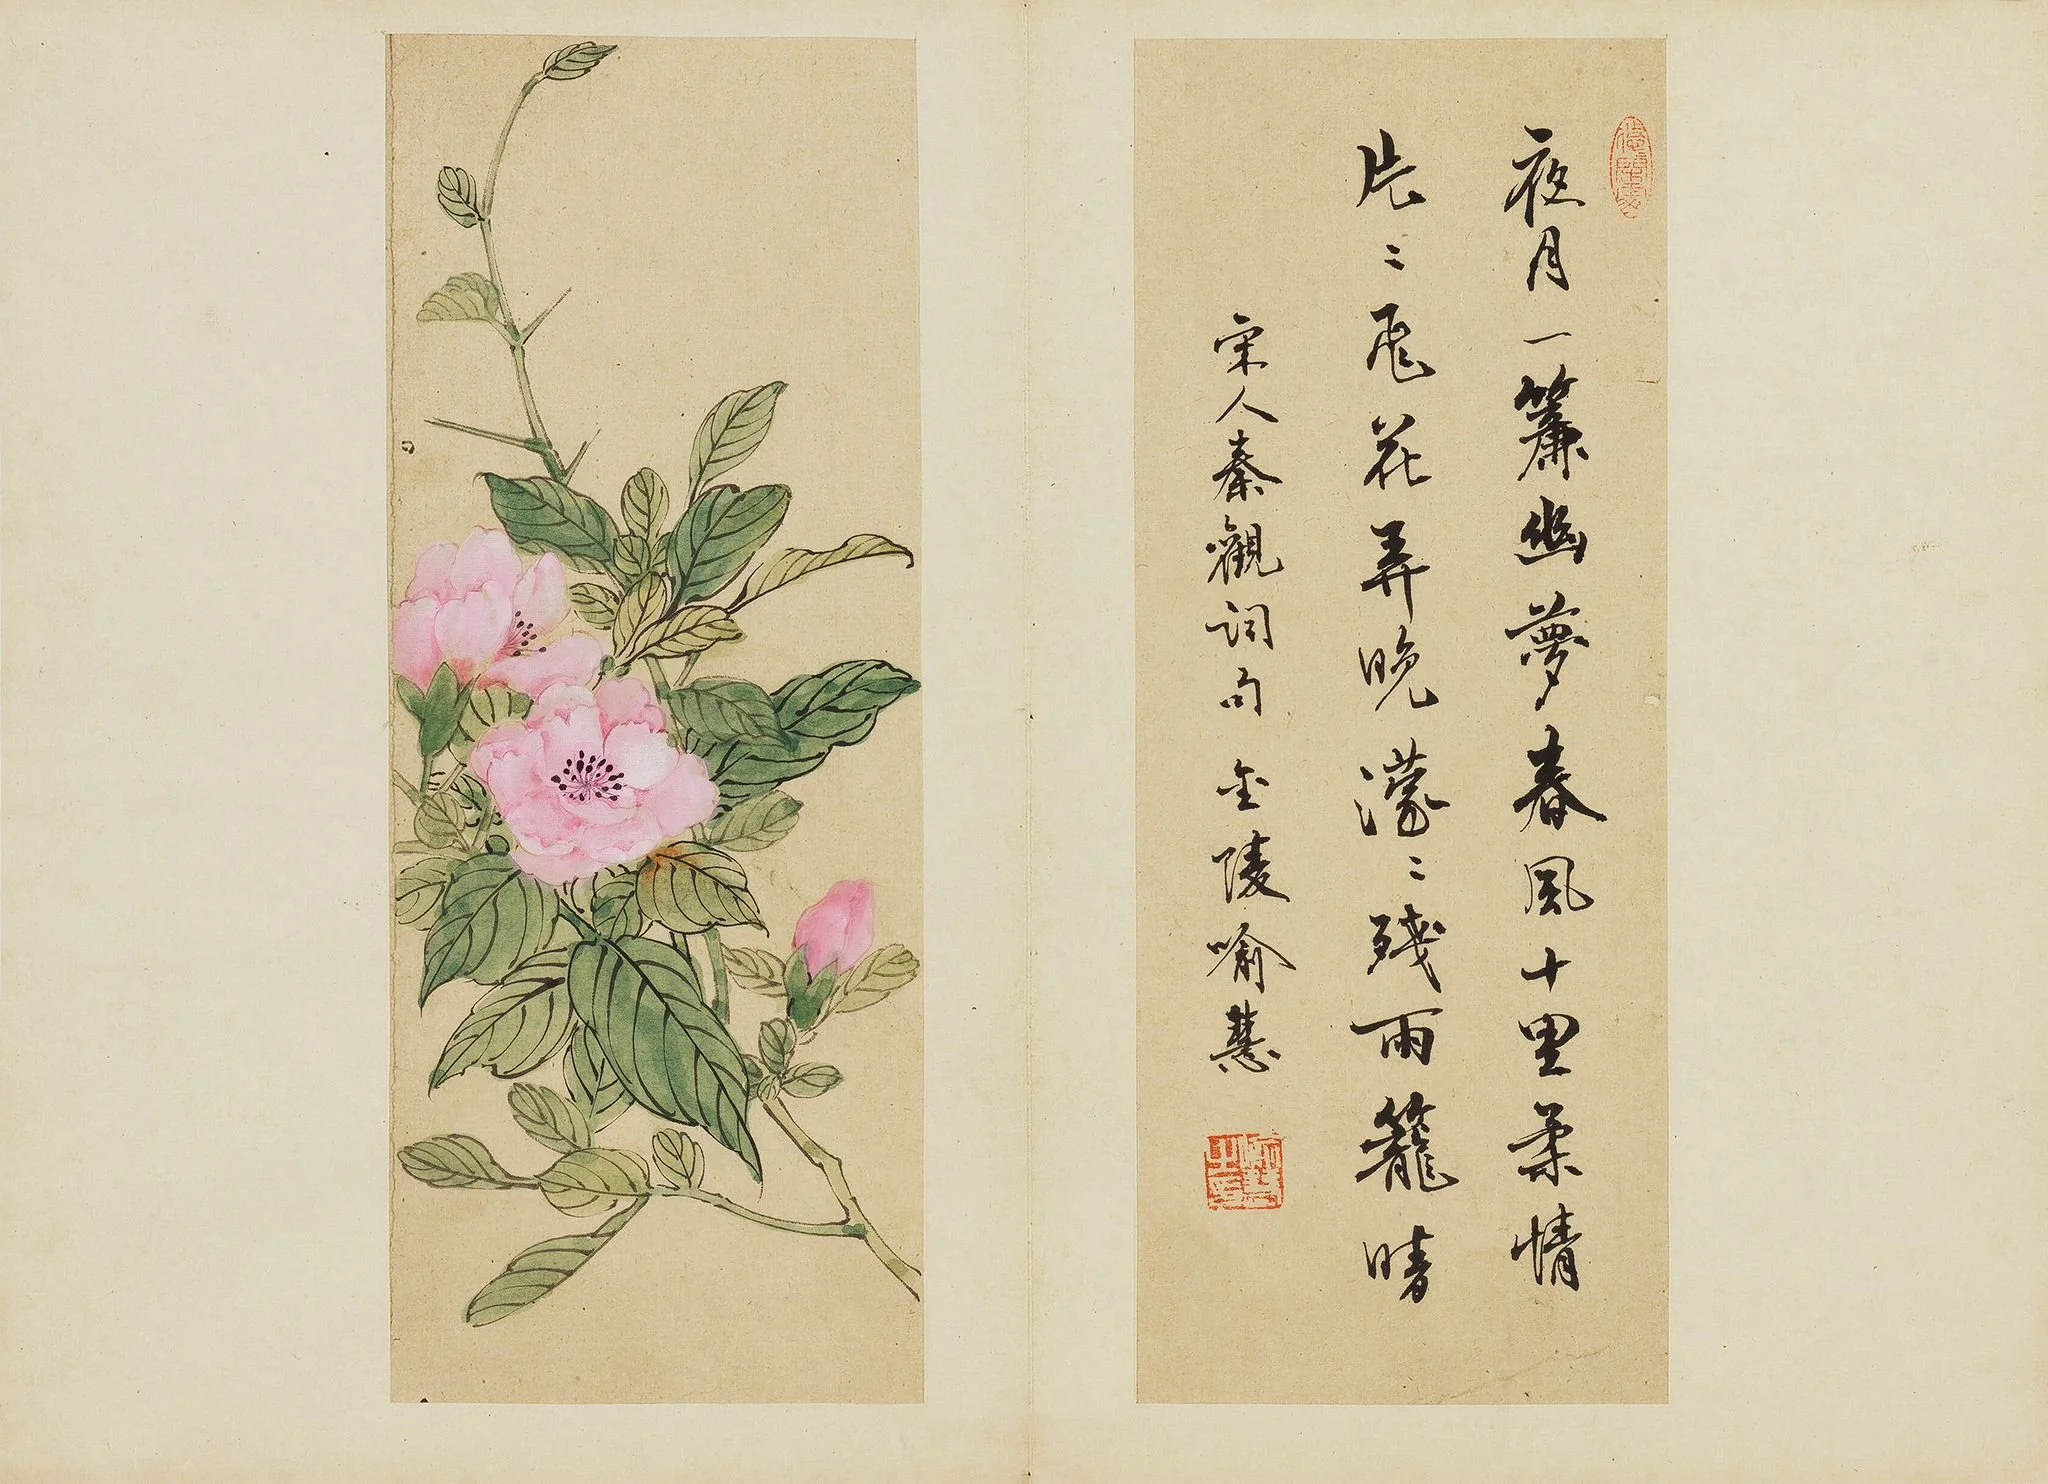 夜月一簾幽夢春風十里柔情
片〻飛花弄晚濛〻殘雨籠晴
宋人秦觀詞句 金陵喻慧
喻慧之印